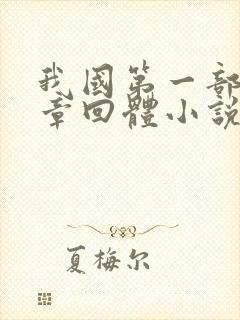 我國第一部
章回體小說
夏梅尔